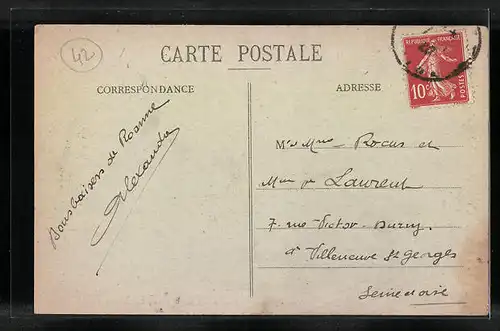 42
CARTE POSTALE
REPUBLIQUE FRANÇAISE
10c
POSTES
CORRESPONDANCE
ADRESSE
Bons baisers de Roanne
Alexandre
Mr & Mme Rocus et
Mme Laurent
7 rue Victor Duruy
à Villeneuve St Georges
Seine et Oise